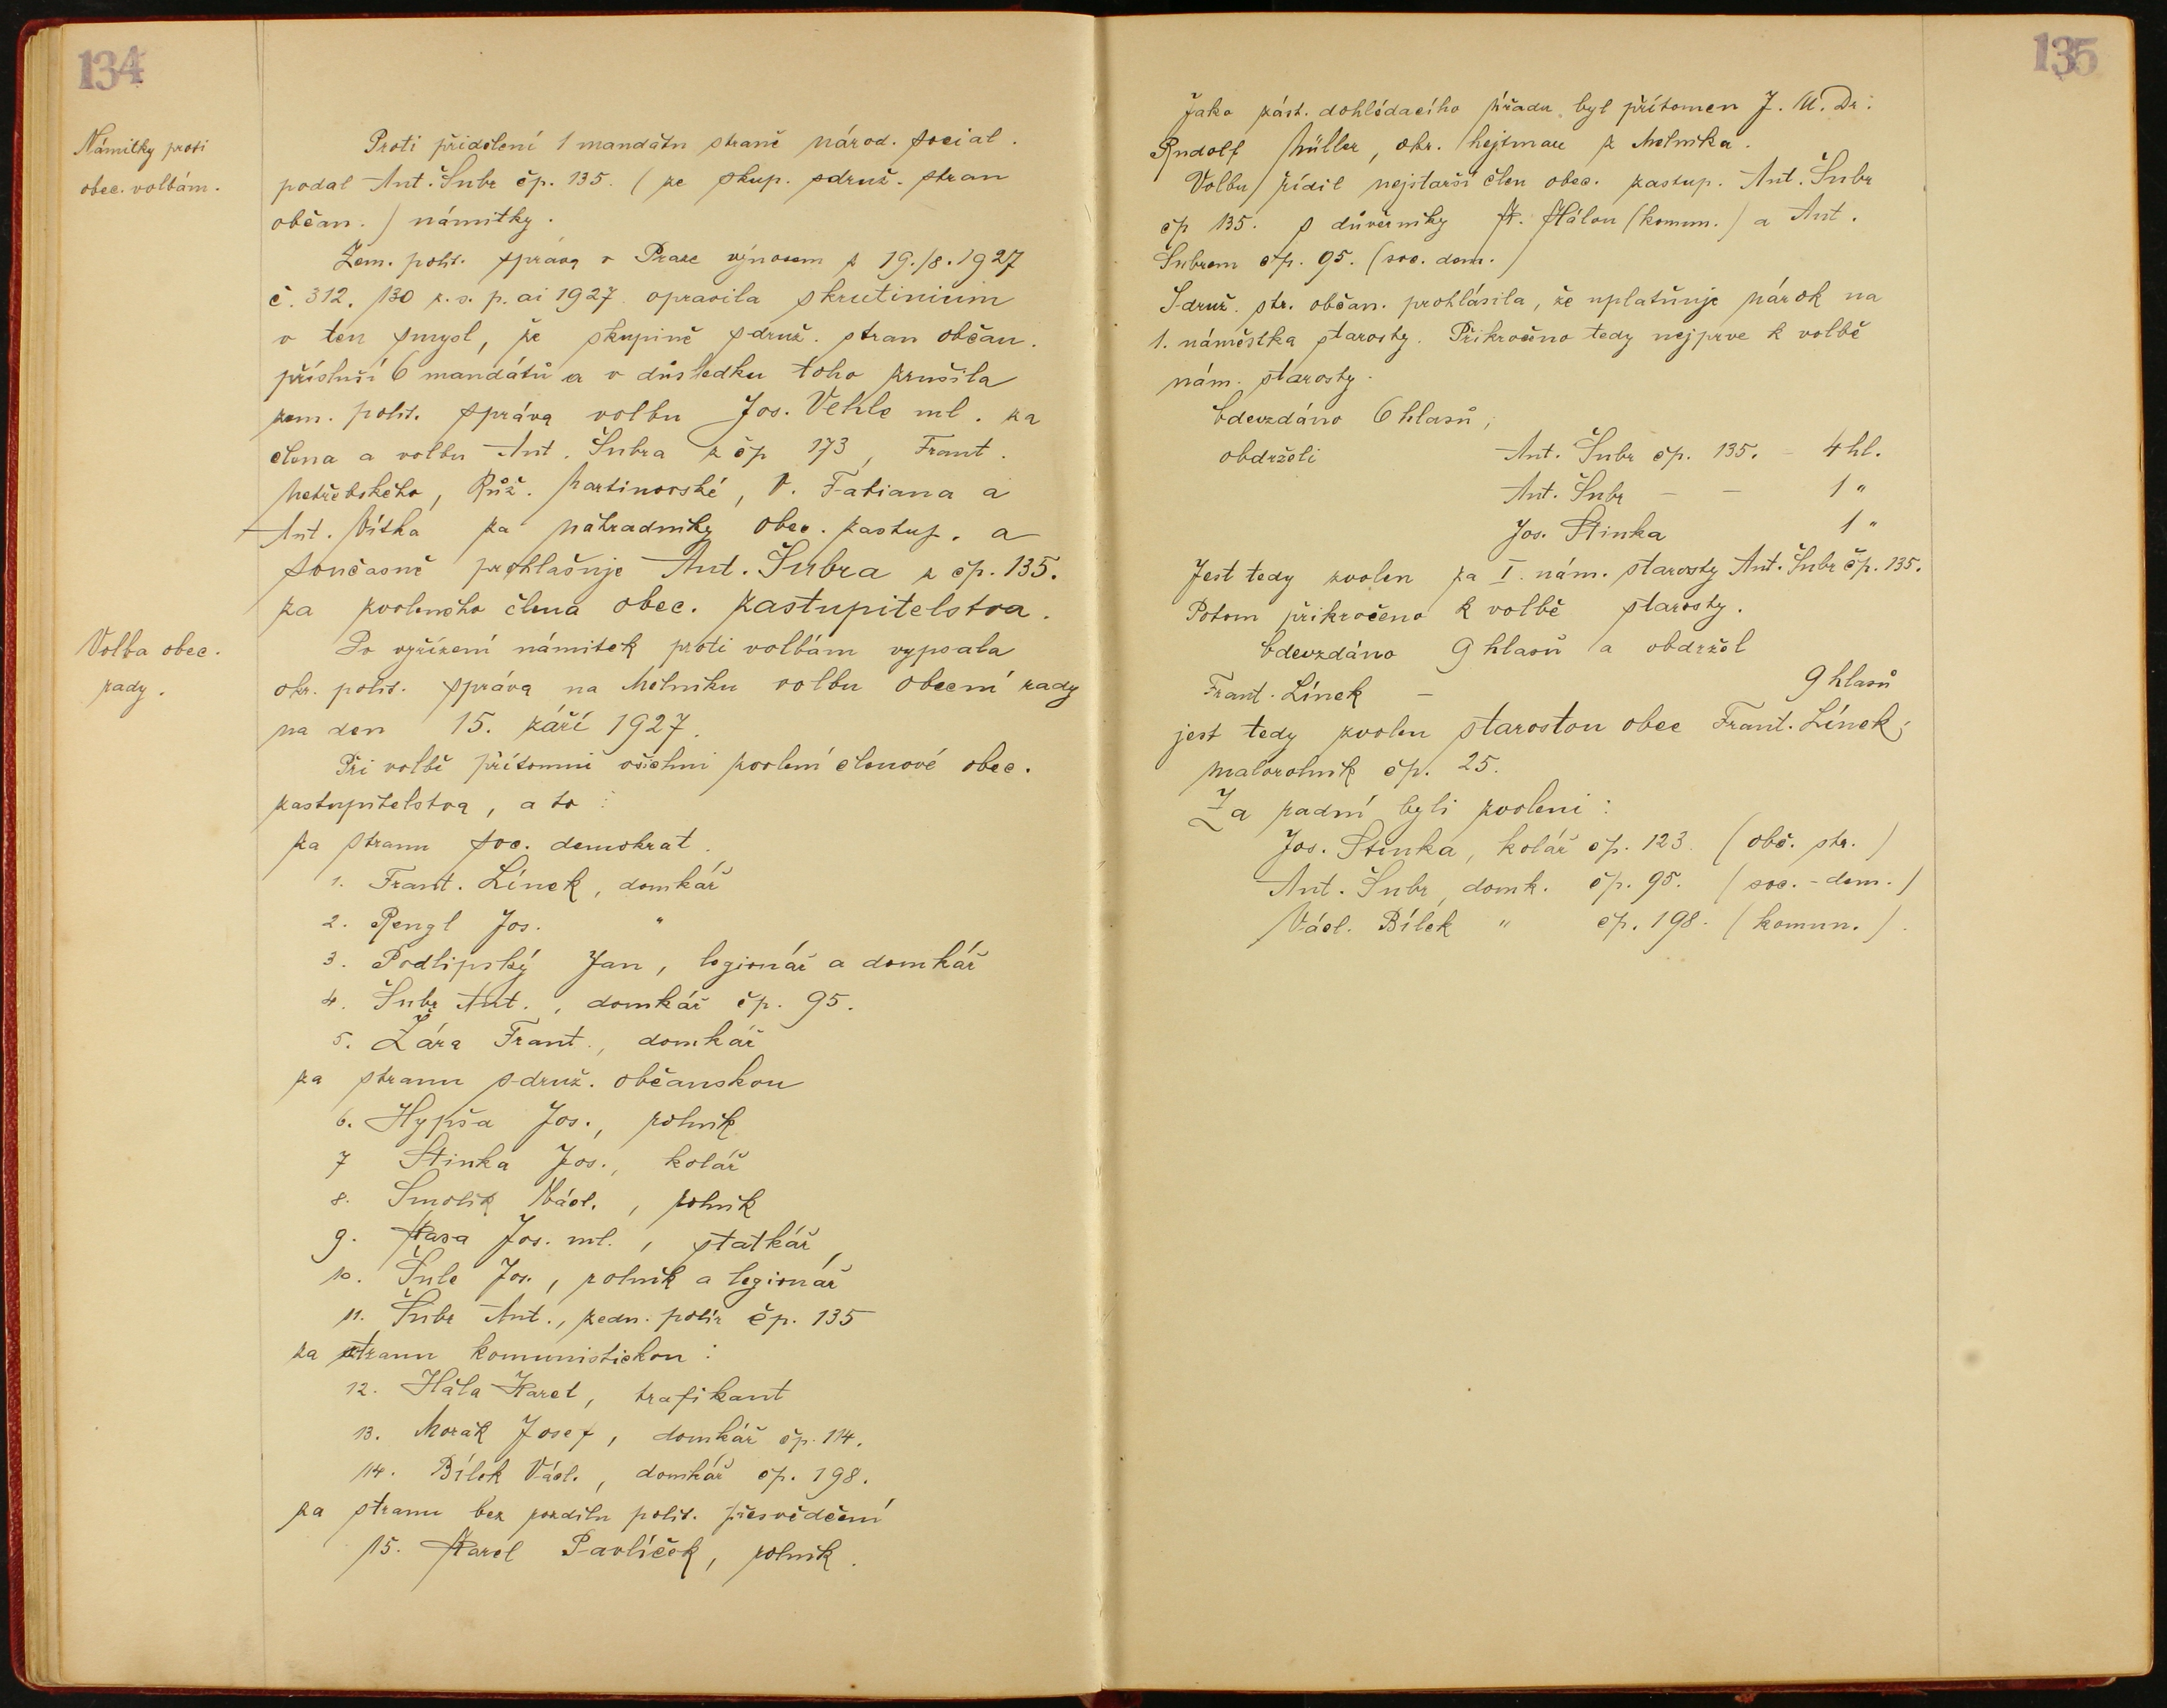 134
Námitky proti
obec. volbám.
Proti přidělení 1 mandátu straně národ. social.
podal Ant. Šubr čp. 135. (ze skup. sdruž. stran
občan.) námitky.
Zem. polit. správa v Praze výnosem z 19./8. 1927
č. 312.130 z. s. p. ai 1927 opravila skrutinium
v ten smysl, že skupině sdruž. stran občan.
přísluší 6 mandátů a v důsledku toho zrušila
zem. polit. správa volbu Jos. Vehle ml. za
člena a volbu Ant. Šubra z čp 173, Frant.
Netřebského, Růž. Martinovské, V. Fabiana a
Ant. Vítka za náhradníky obec. zastup. a
současně prohlašuje Ant. Šubra z čp. 135.
za zvoleného člena obec. zastupitelstva.
Volba obec.
rady.
Po vyřízení námitek proti volbám vypsala
okr. polit. správa na Mělníku volbu obecní rady
na den 15. září 1927.
Při volbě přítomni všichni zvolení členové obec.
zastupitelstva, a to:
za stranu soc. demokrat.
1. Frant. Línek, domkář
2. Rengl Jos. "
3. Podlipský Jan, legionář a domkář
4. Šubr Ant., domkář čp. 95.
5. Žára Frant., domkář
za stranu sdruž. občanskou
6. Hypša Jos., rolník
7 Stinka Jos., kolář
8. Smolík Václ., rolník
9. Kasa Jos. ml., statkář
10. Šule Jos., rolník a legionář
11. Šubr Ant., zedn. polír čp. 135
za stranu komunistickou:
12. Hála Karel, trafikant
13. Morák Josef, domkář čp. 114.
14. Bílek Václ., domkář čp. 198.
za stranu bez rozdílu polit. přesvědčení
15. Karel Pavlíček, rolník.
135
Jako zást. dohlédacího úřadu byl přítomen J. U. Dr.
Rudolf Müller, okr. hejtman z Mělníka.
Volbu řídil nejstarší člen obec. zastup. Ant. Šubr
čp 135. s důvěrníky K. Hálou (komm.) a Ant.
Šubrem čp. 95. (soc. dem.)
Sdruž. str. občan. prohlásila, že uplatňuje nárok na
1. náměstka starosty. Přikročeno tedy nejprve k volbě
nám. starosty.
Odevzdáno 6 hlasů;
obdrželi Ant. Šubr čp. 135. - 4 hl.
Ant. Šubr - - 1 "
Jos. Stinka 1 "
Jest tedy zvolen za I. nám. starosty Ant. Šubr čp. 135.
Potom přikročeno k volbě starosty.
Odevzdáno 9 hlasů a obdržel
Frant. Línek - 9 hlasů
jest tedy zvolen starostou obce Frant. Línek,
malorolník čp. 25.
Za radní byli zvoleni:
Jos. Stinka, kolář čp. 123. (obč. str.)
Ant. Šubr, domk. čp. 95. (soc.-dem.)
Václ. Bílek " čp. 198. (komun.).